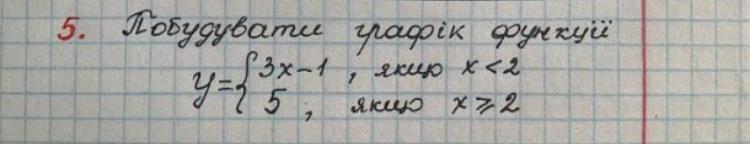 5. Побудувати графік функції
y={3x-1, якщо x<2
{5, якщо x⩾2